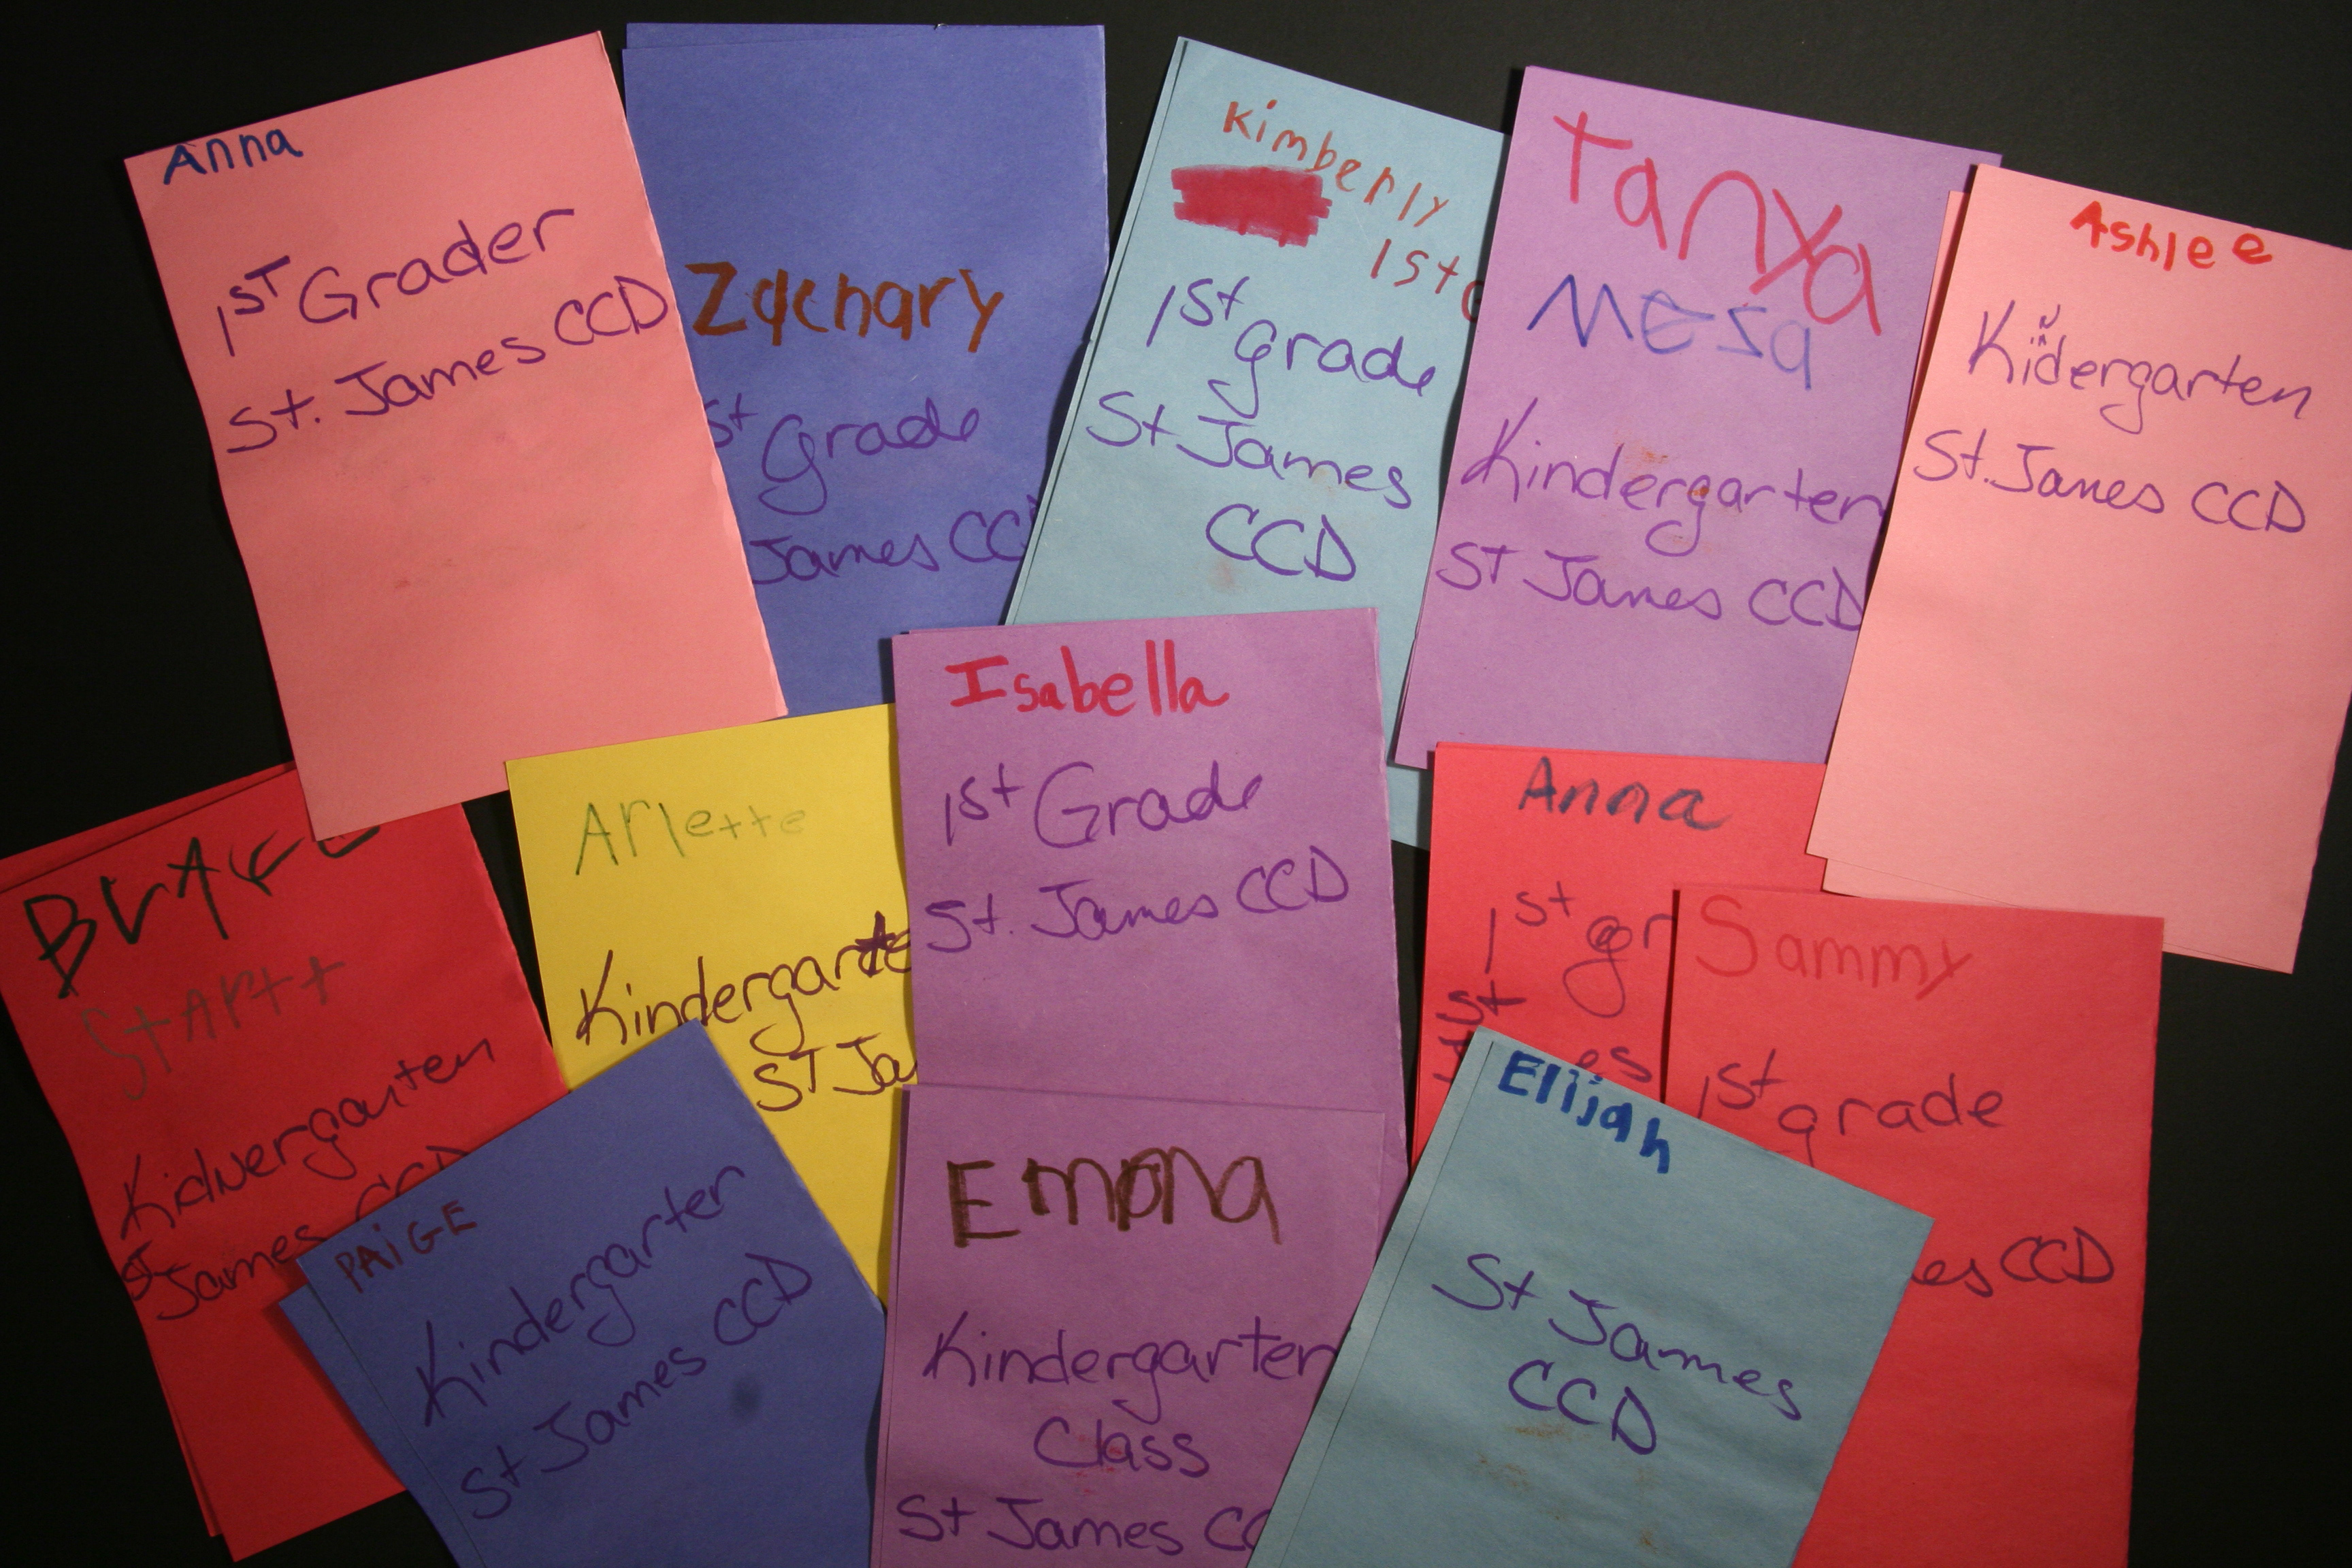 Anna
1ST Grader
St. James CCD
Zachary
st Grade
James CC
Kimberly
1st G
1st grade
St James
CCD
Tanya
MEsa
Kindergarten
ST James CCD
Ashlee
Kidergarten
n
St. James CCD
Arlette
Kindergarte
ST Ja
Isabella
1st Grade
St. James CCD
Anna
1st gr
St
es
Sammy
1st grade
es CCD
StARtt
Kidnergarten
St James CCD
PAiGE
Kindergarten
St James CCD
Emma
Kindergarten
Class
St James CC
Elijah
St James
CCD